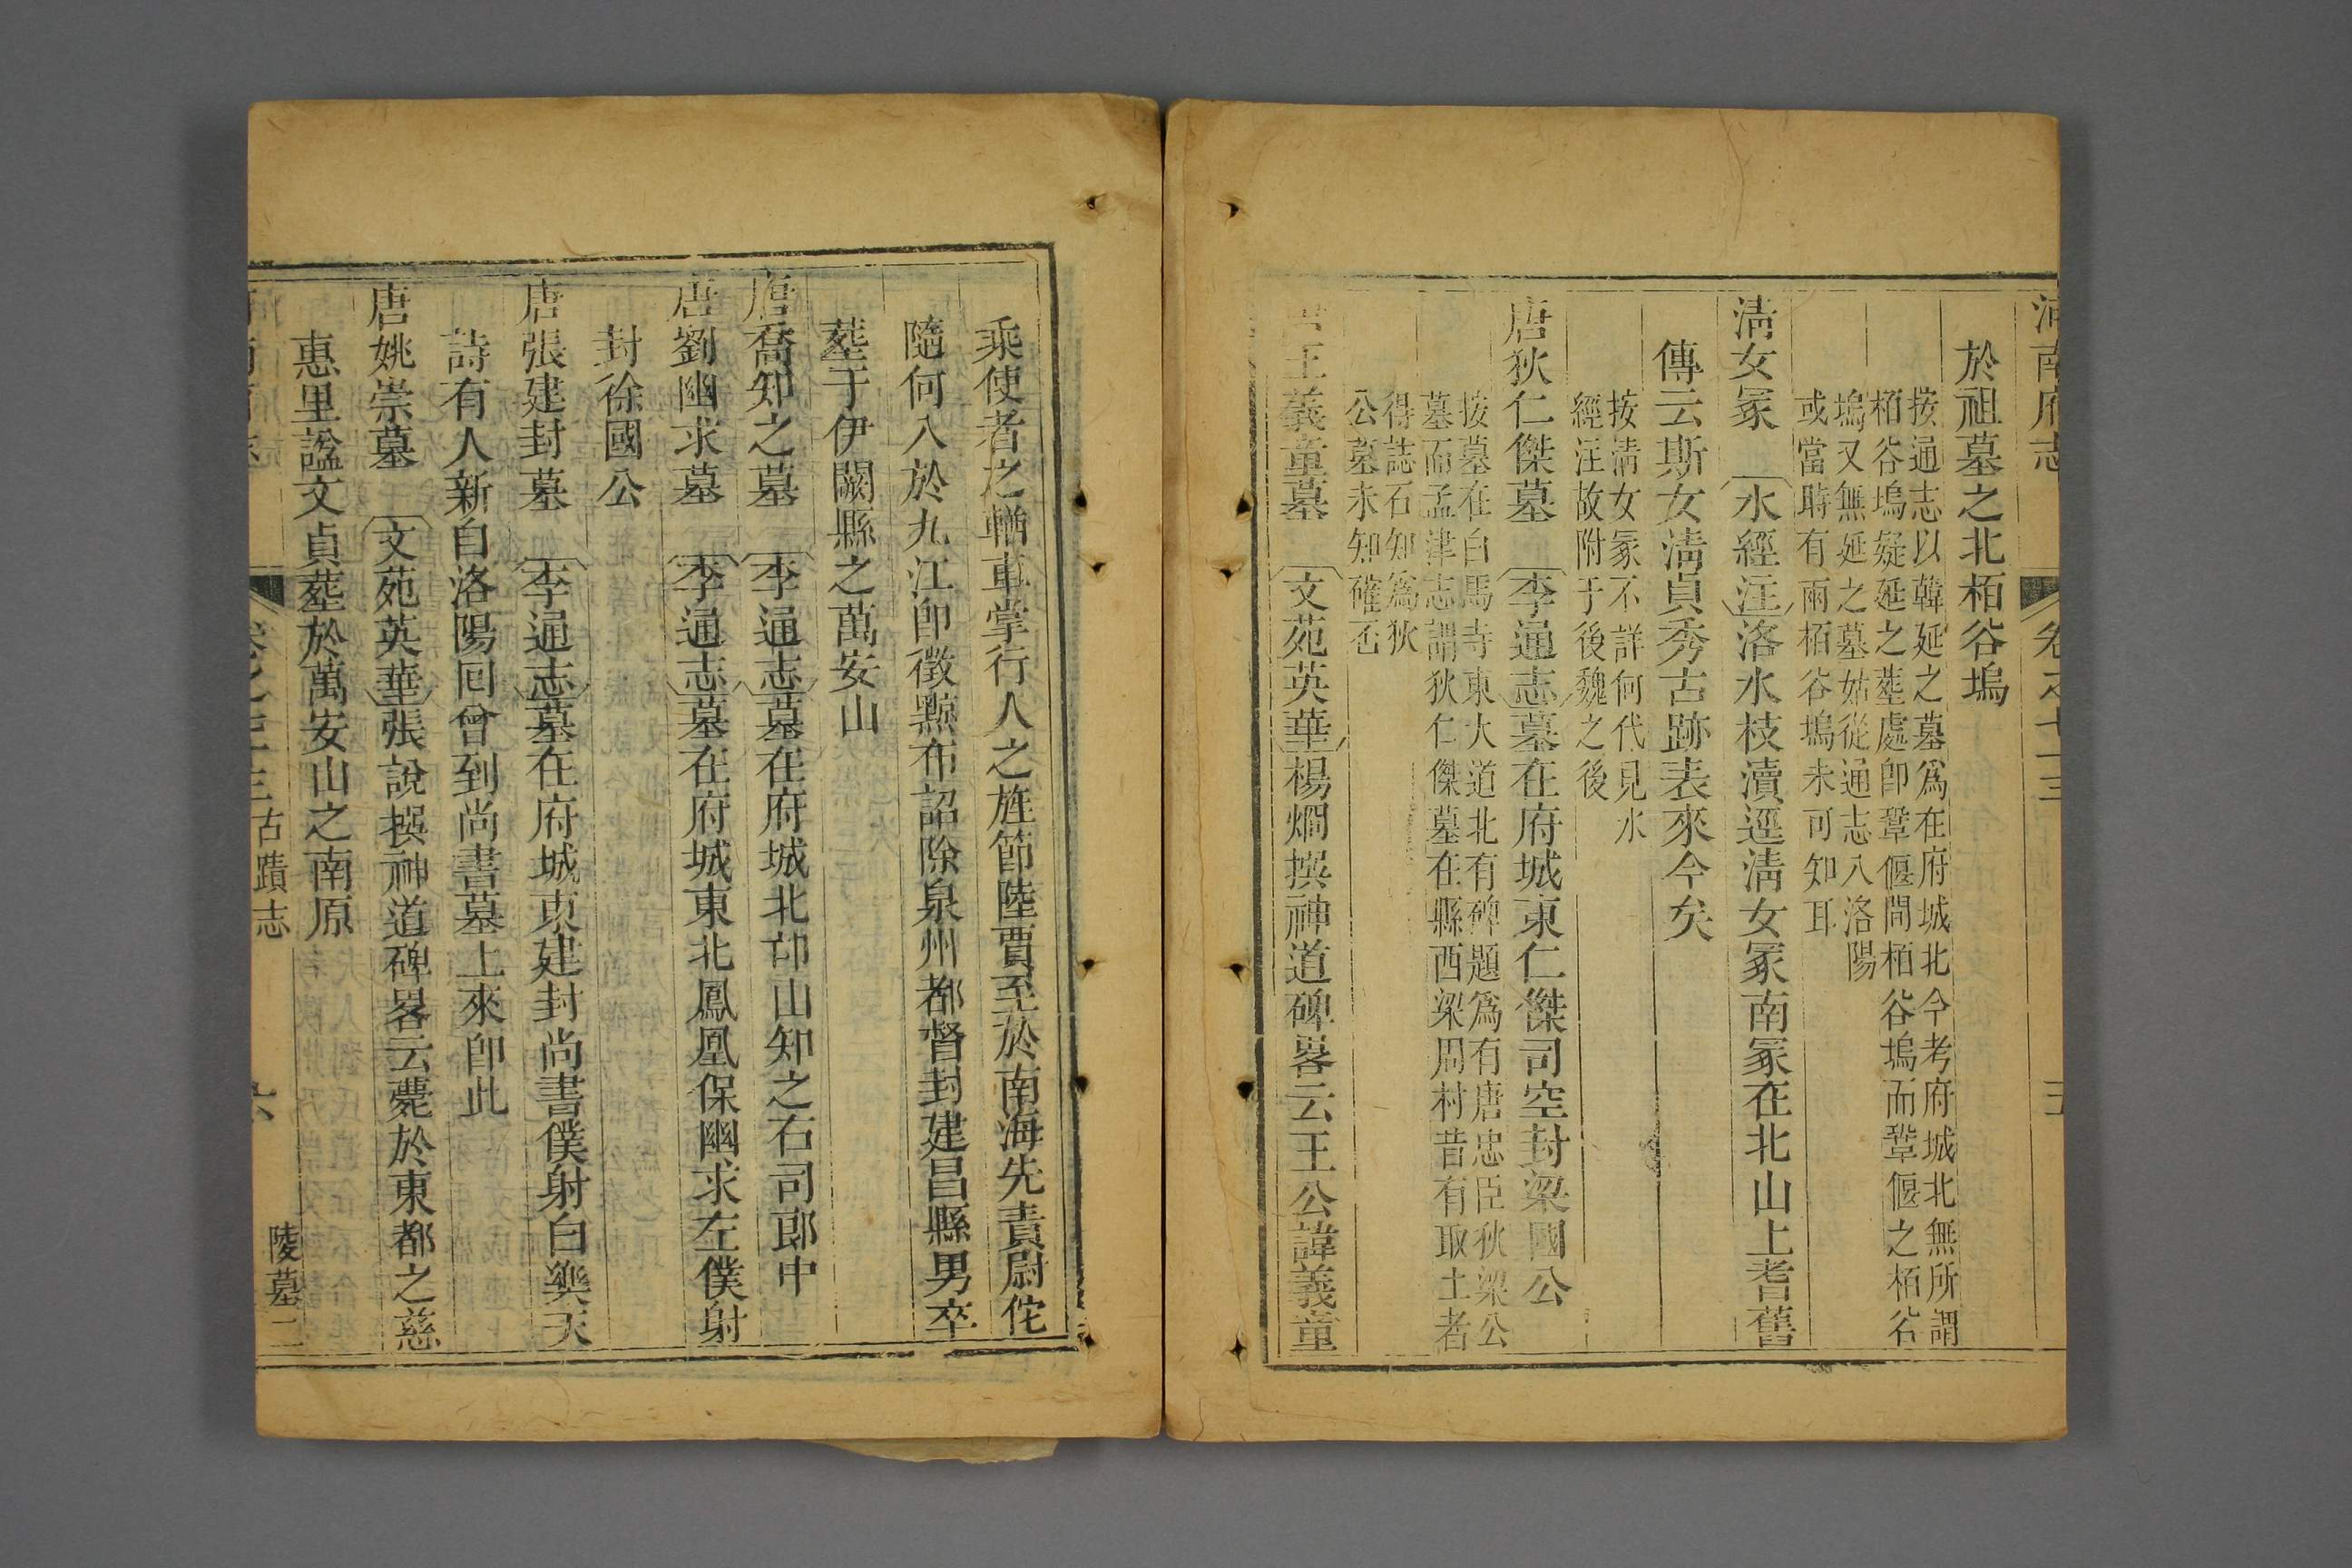 河南府志 卷之七十三 五
於祖墓之北栢谷塢
按通志以韓延之墓爲在府城北今考府城北無所謂
栢谷塢疑延之塟處卽鞏偃間栢谷塢而鞏偃之栢谷
塢又無延之墓姑從通志入洛陽
或當時有兩栢谷塢未可知耳
淸女冢 水經注洛水枝瀆逕淸女冢南冢在北山上耆舊
傳云斯女淸貞秀古跡表來今矣
按淸女冢不詳何代見水
經注故附于後魏之後
唐狄仁傑墓 李通志墓在府城東仁傑司空封梁國公
按墓在白馬寺東大道北有碑題爲有唐忠臣狄梁公
墓而孟津志謂狄仁傑墓在縣西梁周村昔有取土者
得誌石知爲狄
公墓未知確否
王義童墓 文苑英華楊烱撰神道碑畧云王公諱義童
乘使者之輶車掌行人之旌節陸賈至於南海先責尉佗
隨何入於九江卽徵黥布詔除泉州都督封建昌縣男卒
塟于伊闕縣之萬安山
唐喬知之墓 李通志墓在府城北邙山知之右司郎中
唐劉幽求墓 李通志墓在府城東北鳳凰保幽求左僕射
封徐國公
唐張建封墓 李通志墓在府城東建封尚書僕射白樂天
詩有人新自洛陽回曾到尚書墓上來卽此
唐姚崇墓 文苑英華張說撰神道碑畧云薨於東都之慈
惠里諡文貞塟於萬安山之南原
古蹟志 陵墓二 六